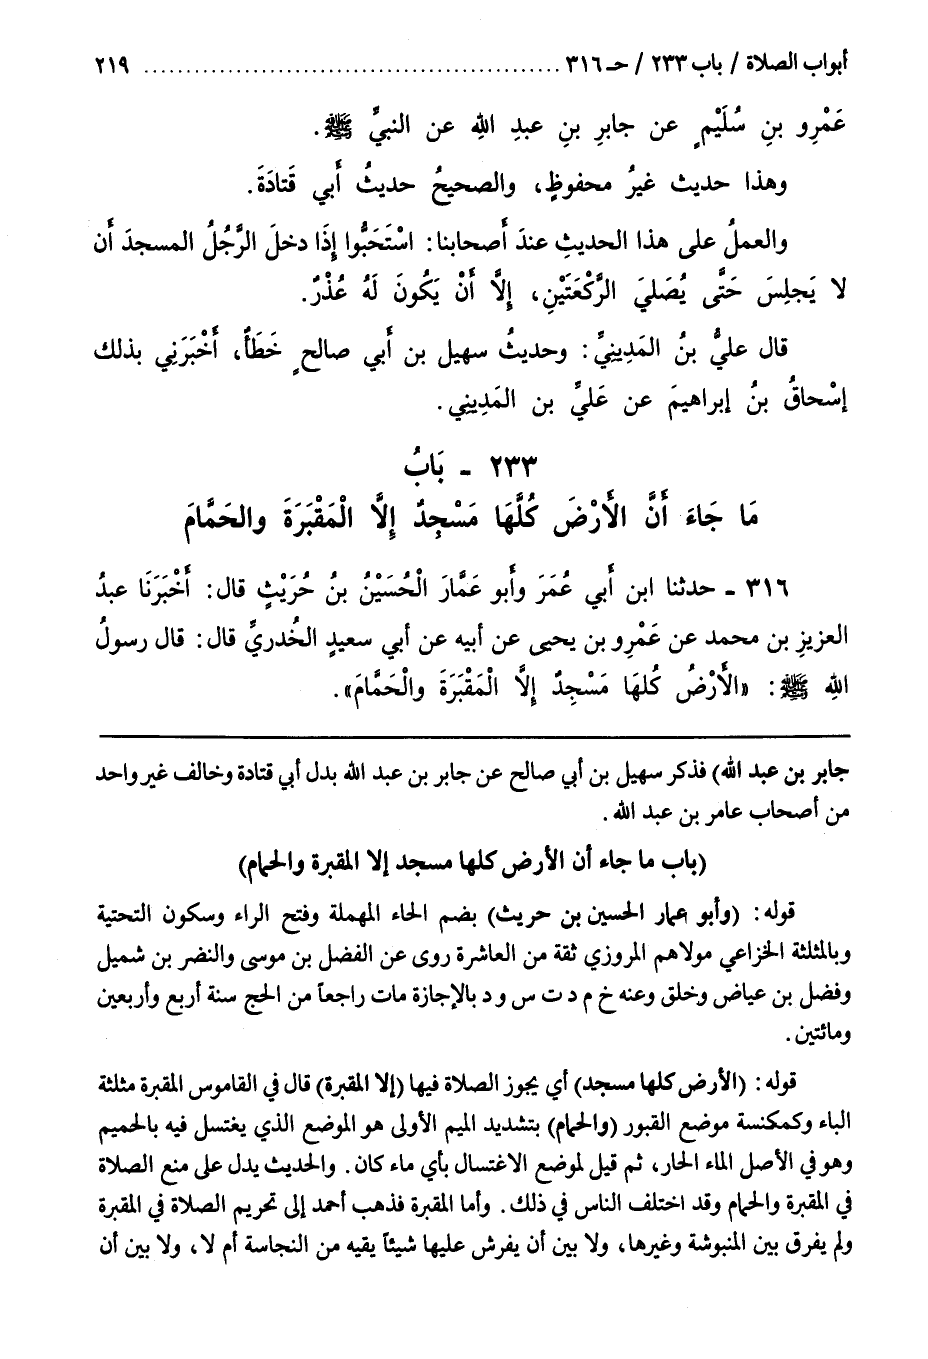 أبواب الصلاة / باب ٢٣٣ / حـ ٣١٦ ................................................ ٢١٩
عَمْرِو بنِ سُلَيْمٍ عن جابرِ بنِ عبدِ اللهِ عن النبيِّ ﷺ.
وهذا حديث غيرُ محفوظٍ، والصحيحُ حديثُ أَبي قَتادَةَ.
والعملُ على هذا الحديثِ عندَ أَصحابنا: اسْتَحَبُّوا إِذَا دخلَ الرَّجُلُ المسجدَ أَن
لا يَجلِسَ حَتَّى يُصَليَ الرَّكْعَتَيْنِ، إِلَّا أَنْ يَكُونَ لَهُ عُذْرٌ.
قال عليُّ بنُ المَدِينِيِّ: وحديثُ سهيل بن أَبي صالحٍ خَطَأٌ، أَخْبَرَنِي بذلك
إسْحاقُ بنُ إبراهيمَ عن عَليِّ بن المَدِينِي.
٢٣٣ ـ بَابُ
مَا جَاءَ أَنَّ الأَرْضَ كُلَّهَا مَسْجِدٌ إِلَّا الْمَقْبَرَةَ والحَمَّامَ
٣١٦ ـ حدثنا ابن أَبي عُمَرَ وأَبو عَمَّارَ الْحُسَيْنُ بنُ حُرَيْثٍ قال: أَخْبَرَنَا عبدُ
العزيزِ بن محمد عن عَمْرِو بن يحيى عن أبيه عن أبي سعيدٍ الخُدريِّ قال: قال رسولُ
اللهِ ﷺ: «الأَرْضُ كُلهَا مَسْجِدٌ إِلَّا الْمَقْبَرَةَ والْحَمَّامَ».
جابر بن عبد الله) فذكر سهيل بن أبي صالح عن جابر بن عبد الله بدل أبي قتادة وخالف غير واحد
من أصحاب عامر بن عبد الله.
(باب ما جاء أن الأرض كلها مسجد إلا المقبرة والحمام)
قوله: (وأبو عمار الحسين بن حريث) بضم الحاء المهملة وفتح الراء وسكون التحتية
وبالمثلثة الخزاعي مولاهم المروزي ثقة من العاشرة روى عن الفضل بن موسى والنضر بن شميل
وفضل بن عياض وخلق وعنه خ م د ت س و د بالإجازة مات راجعاً من الحج سنة أربع وأربعين
ومائتين.
قوله: (الأرض كلها مسجد) أي يجوز الصلاة فيها (إلا المقبرة) قال في القاموس المقبرة مثلثة
الباء وكمكنسة موضع القبور (والحمام) بتشديد الميم الأولى هو الموضع الذي يغتسل فيه بالحميم
وهو في الأصل الماء الحار، ثم قيل لموضع الاغتسال بأي ماء كان. والحديث يدل على منع الصلاة
في المقبرة والحمام وقد اختلف الناس في ذلك. وأما المقبرة فذهب أحمد إلى تحريم الصلاة في المقبرة
ولم يفرق بين المنبوشة وغيرها، ولا بين أن يفرش عليها شيئاً يقيه من النجاسة أم لا، ولا بين أن